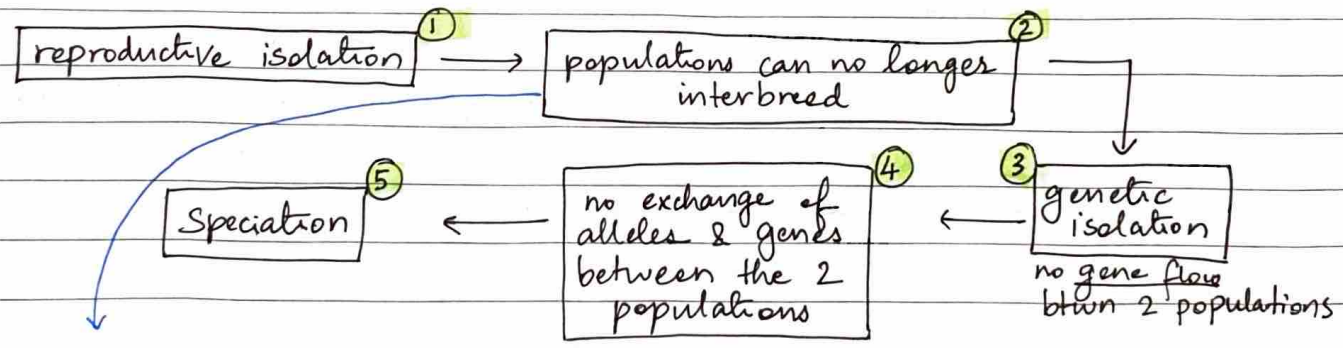 ①
reproductive isolation
②
populations can no longer
interbreed
③
genetic
isolation
no gene flow
btwn 2 populations
④
no exchange of
alleles & genes
between the 2
populations
⑤
Speciation